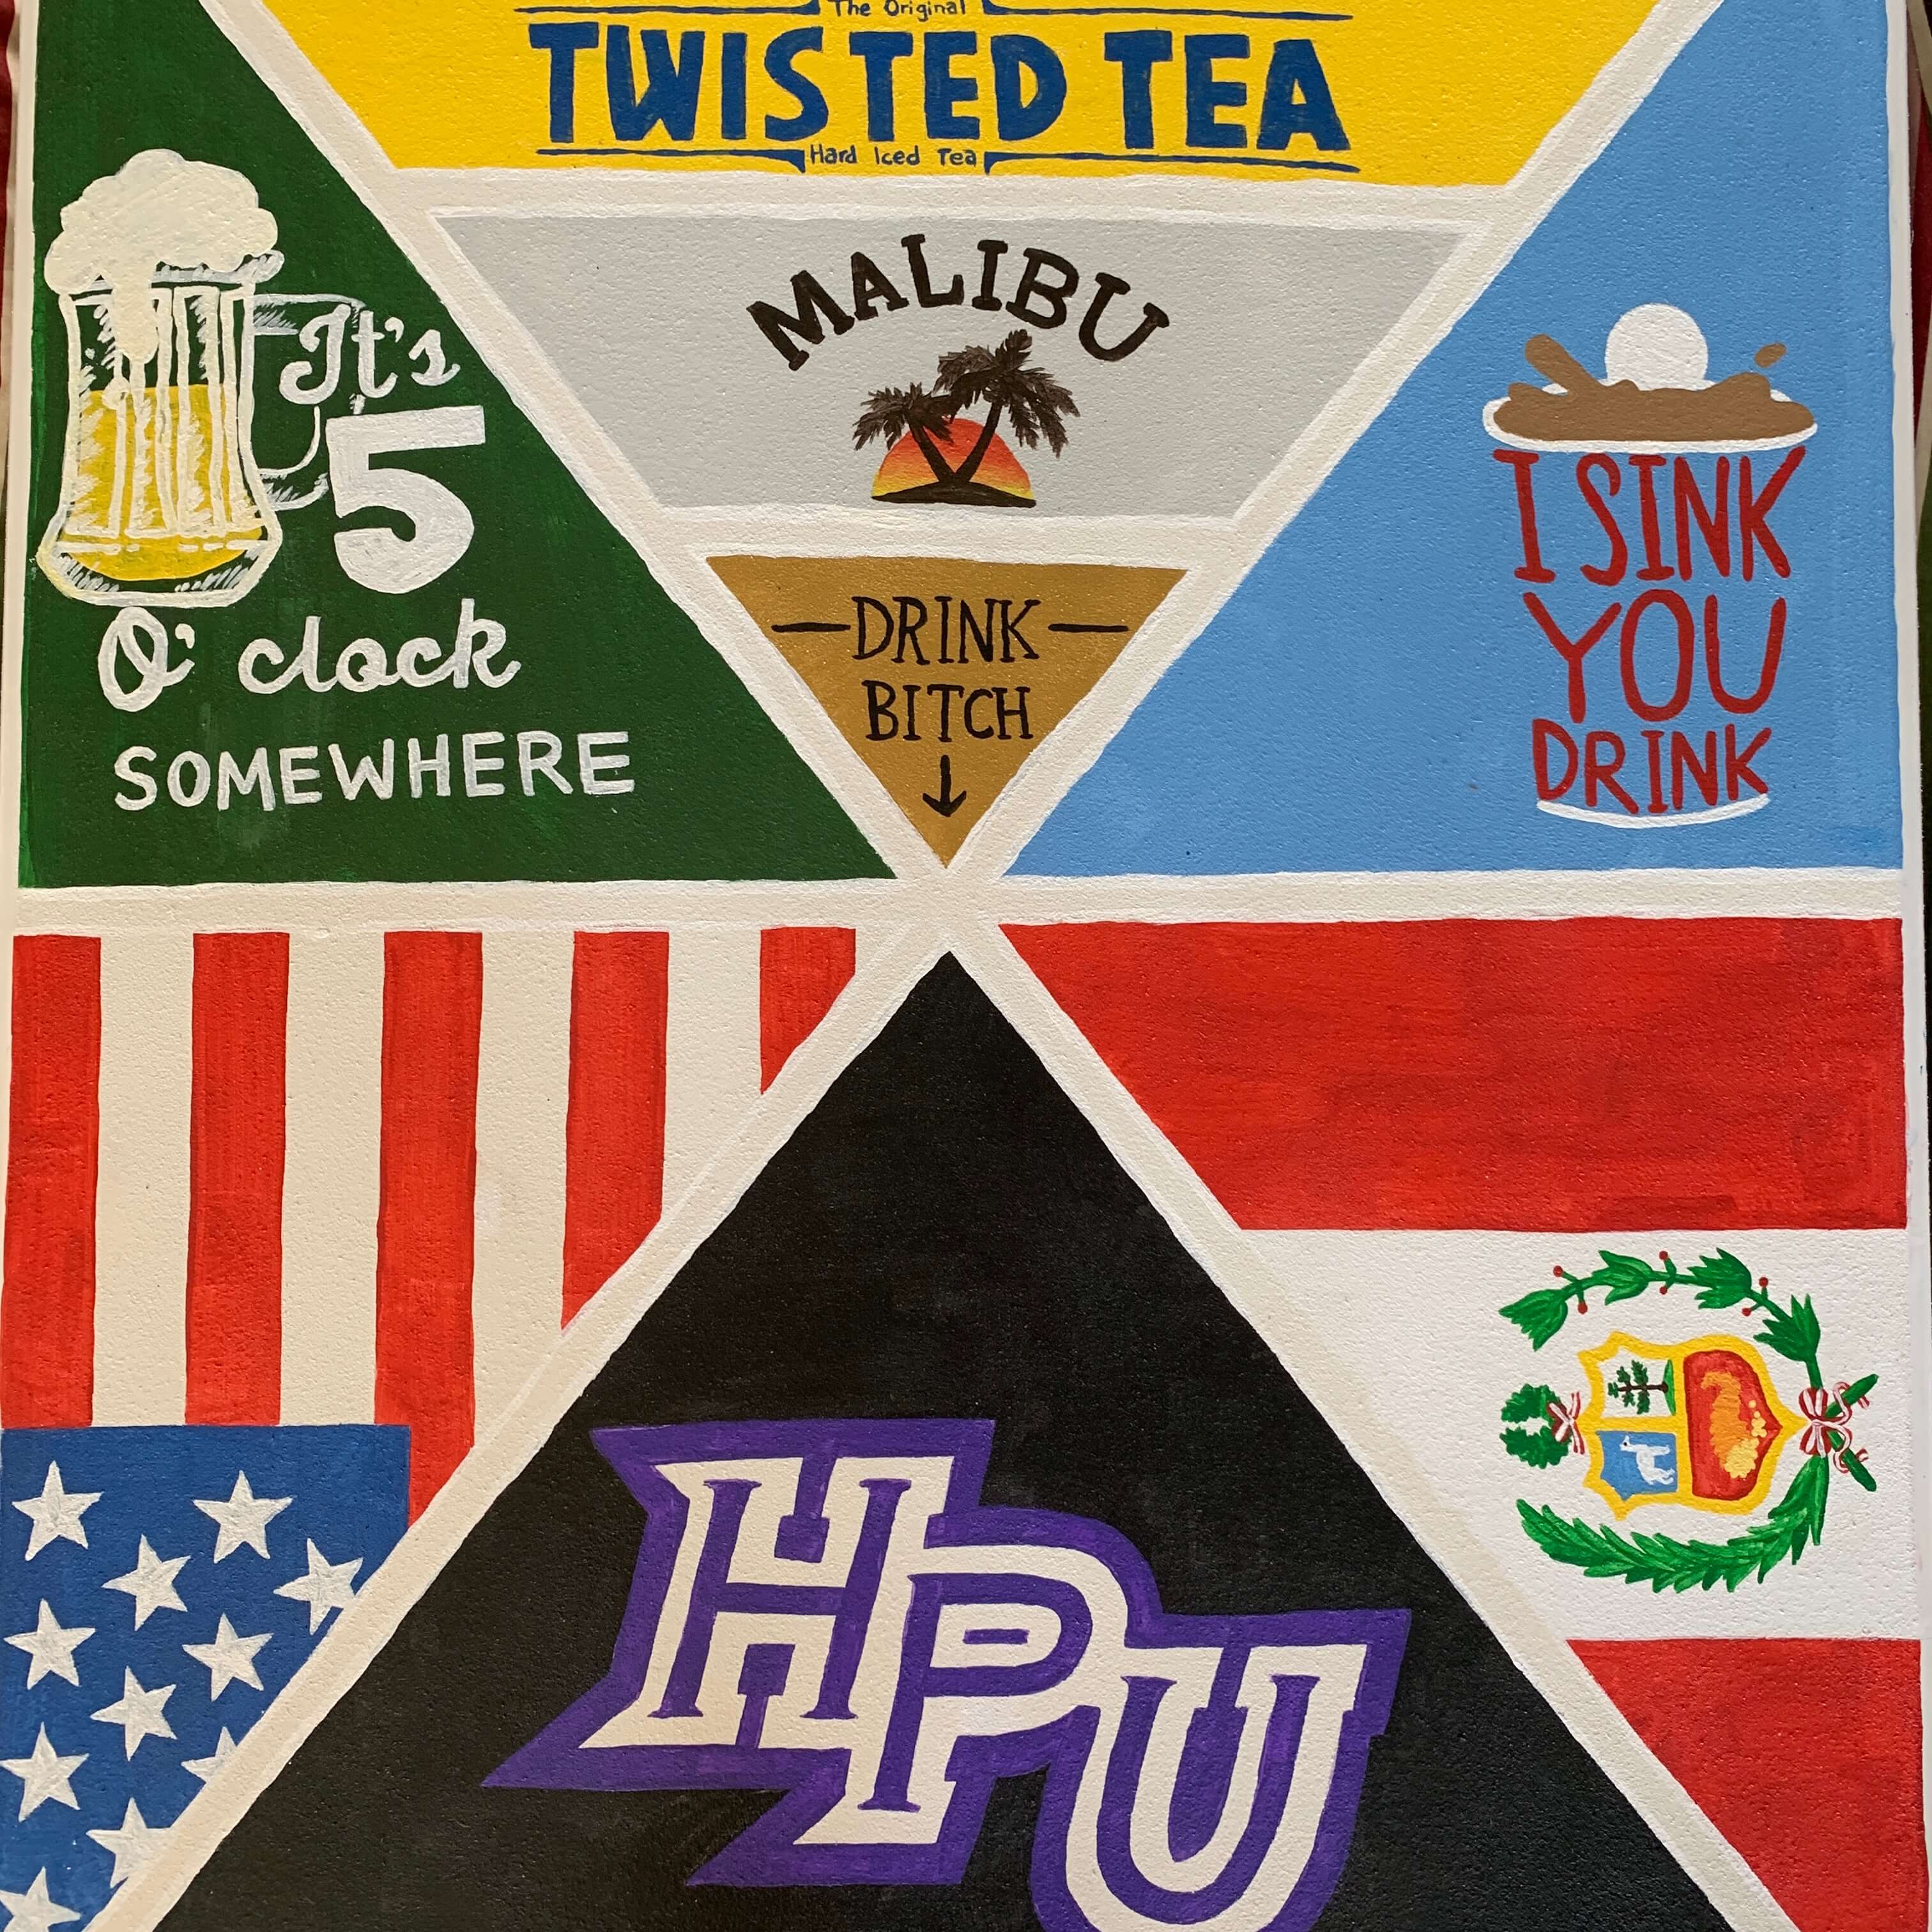 The Original
TWISTED TEA
Hard Iced Tea
MALIBU
It's
5
O' clock
SOMEWHERE
DRINK
BITCH
I SINK
YOU
DRINK
HPU